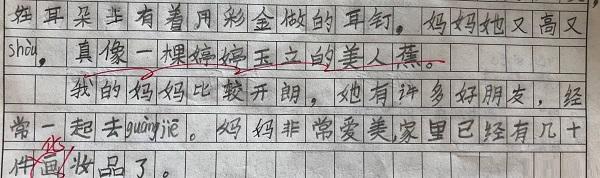 耳朵上有着用彩金做的耳钉。妈妈她又高又
shòu，真像一棵婷婷玉立的美人蕉。
我的妈妈比较开朗，她有许多好朋友，经
常一起去guàngjiē。妈妈非常爱美,家里已经有几十
化
件画妆品了。